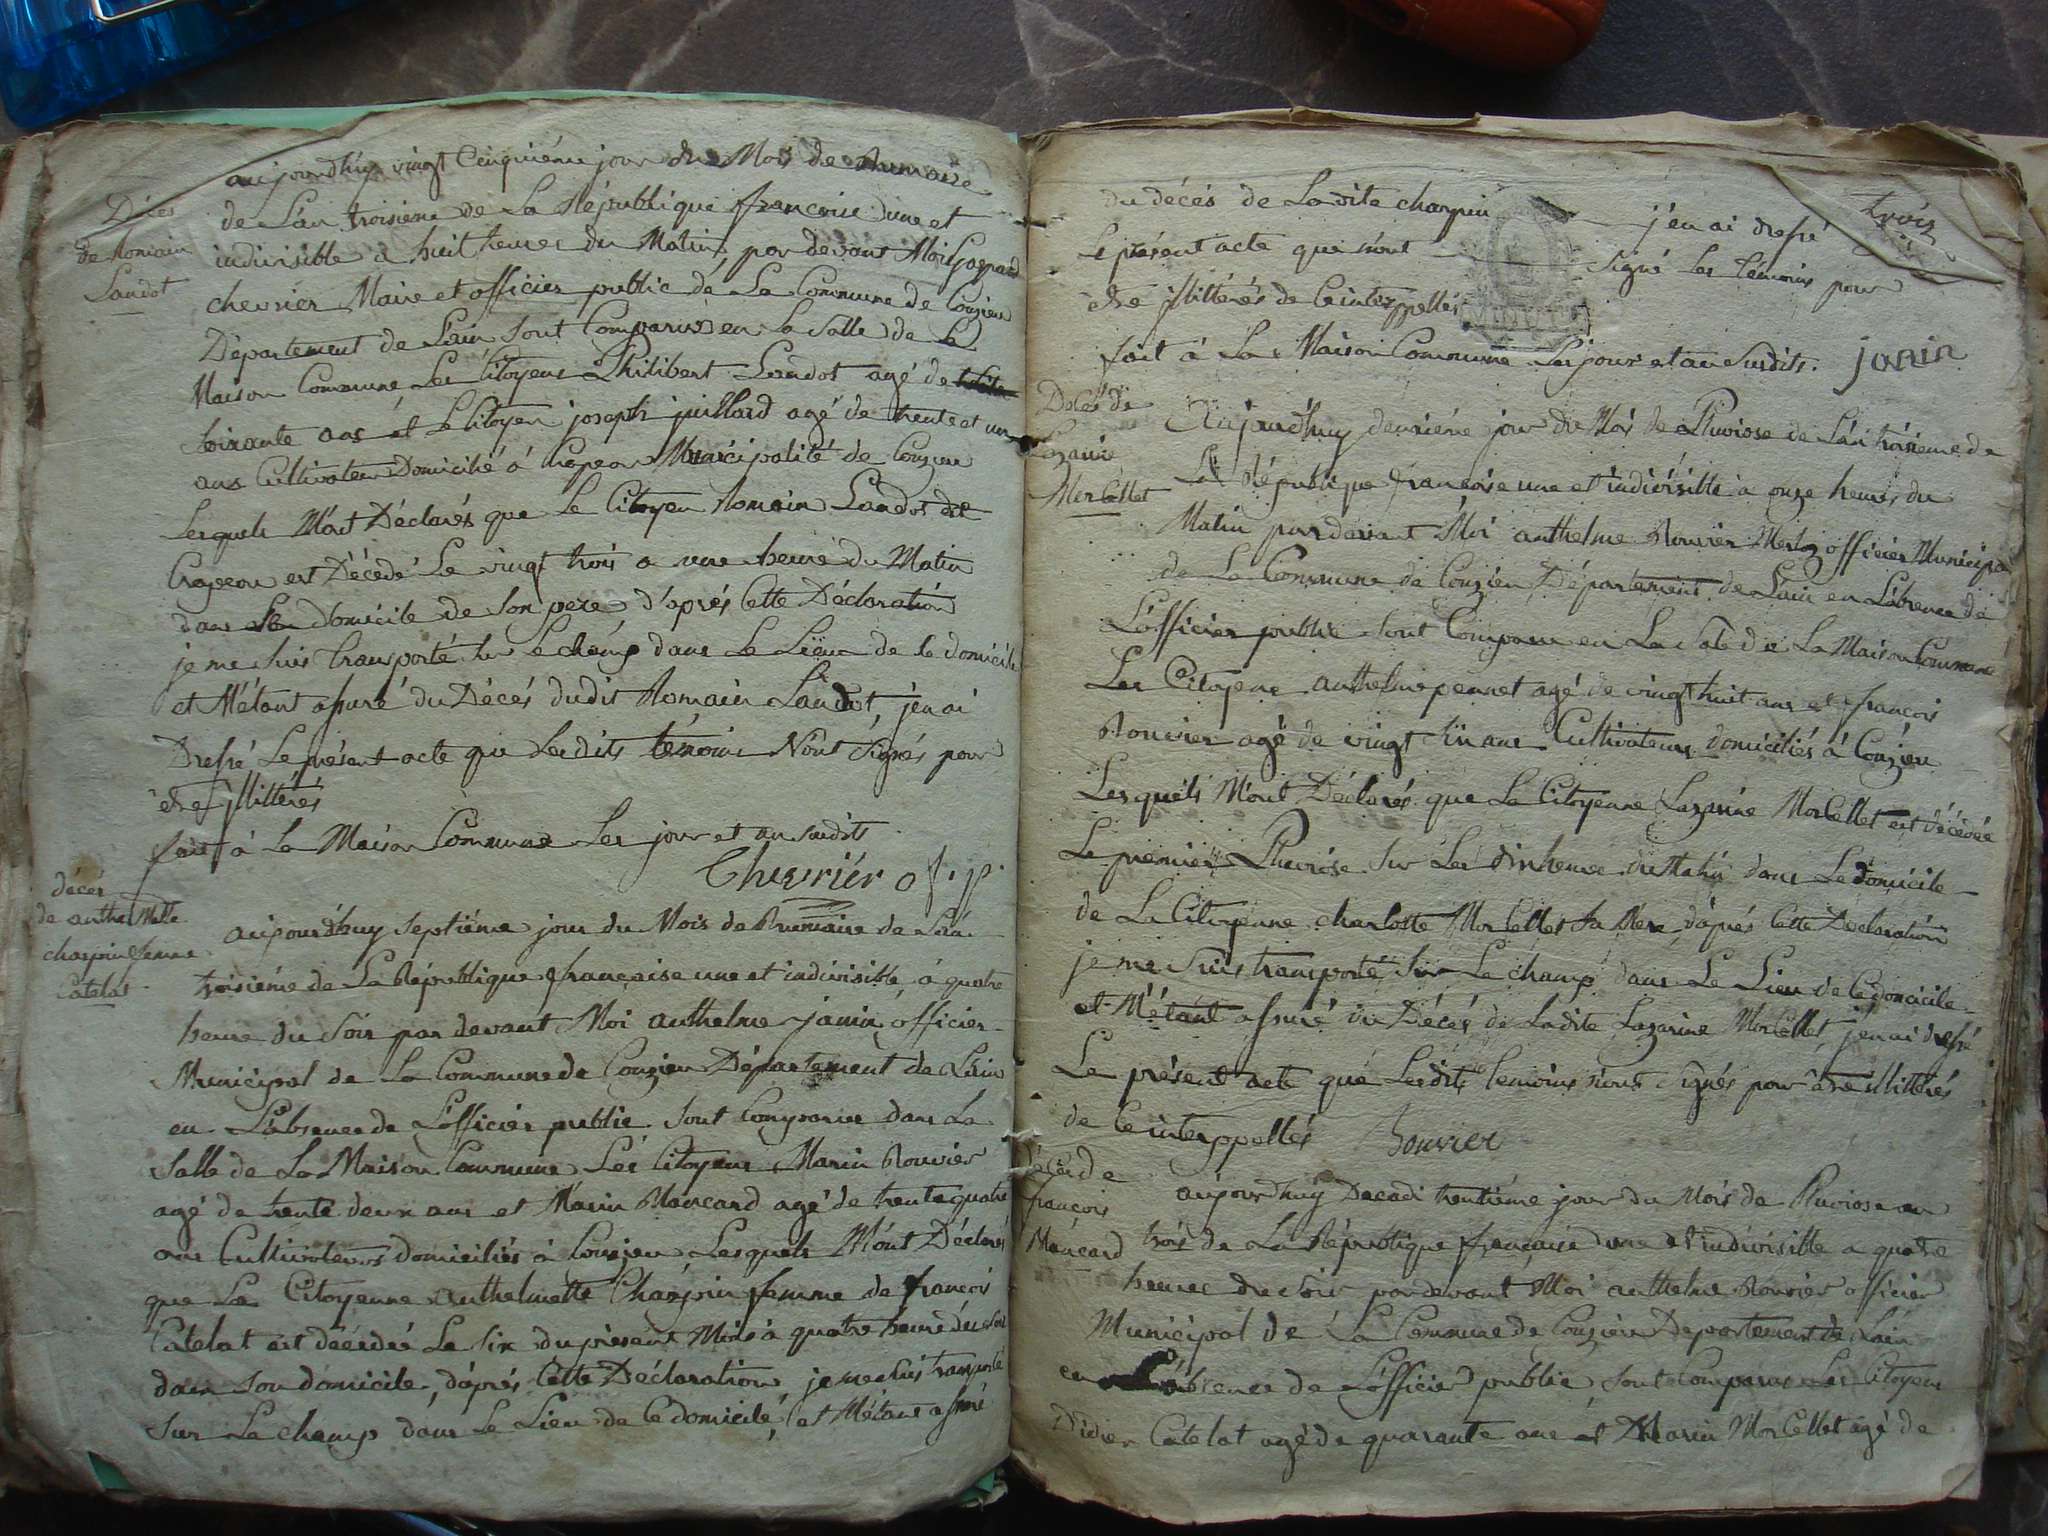 Décès
de Romain
Landot
aujourdhuy vingt Cinquiéme jour du Mois de Brumaire
de L'an troisieme de La République francoise une et
indivisible a huit heures du Matin, par devant Moi Gaspard
chevrier Maire et officier public de La Commune de Conzieu
Département de L'ain Sont Comparus en La Salle de La
Maison Commune Les Citoyens Philibert Landot agé de
Soixante ans et Le Citoyen joseph juillard agé de trente et un
ans Cultivateurs Domicilié à Crapeou Municipalité de Conzieu
Lesquels M'ont Déclarés que Le Citoyen Romain Landot de
Crapeou est Décédé Le vingt trois a une heure du Matin
dans Son domicile de Son pere d'aprés Cette Déclaration
je me Suis transporté Sur Le champ dans Le Lieu de Ce domicile
et M'étant assuré du Décés dudit Romain Landot, j'en ai
Dressé Le présent acte que Lesdits témoins N'ont Signés pour
être illittérés
fait à La Maison Commune Les jour et an Susdits
Chevrier of. p.
décés
de anthelmette
charpin femme
Catelat
aujourdhuy Septiéme jour du Mois de Brumaire de L'an
troisiéme de La République française une et indivisible, à quatre
heure du Soir par devant Moi anthelme janin, officier
Municipal de La Commune de Conzieu Département de L'ain
en L'absence de L'officier public Sont Comparus dans La
Salle de La Maison Commune Les Citoyens Marin Rouvier
agé de trente deux ans et Marin Mancard agé de trente quatre
ans Cultivateurs domiciliés à Conzieu Lesquels M'ont Déclarés
que La Citoyenne anthelmette Charpin femme de françois
Catelat est décédée Le Six du présent Mois à quatre heure du Soir
dans Son domicile, d'aprés Cette Déclaration je me Suis transporté
Sur Le champ dans Le Lieu de Ce domicile, et M'étant assuré
trois
du décés de La dite charpin j'en ai dressé
Le présent acte que n'ont Signé Les témoins pour
être illittérés de Ce interppellés
fait à La Maison Commune Les jour et an Susdits. janin
Décés de
Lazarine
Morcellet
Aujourdhuy deuxiéme jour du Mois de Pluviose de L'an troisieme de
La République francoise une et indivisible à onze heures du
Matin par devant Moi anthelme Rouvier officier Municipal
de La Commune de Conzieu, Département de L'ain en L'absence de
L'officier public Sont Comparus en La Sale de La Maison Commune
Les Citoyens anthelme pennet agé de vingt huit ans et françois
Rouvier agé de vingt Six ans Cultivateurs domiciliés à Conzieu
Lesquels M'ont Déclarés que La Citoyenne Lazarine Morcellet est décédée
Le premier Pluviose Sur Les dix heures du Matin dans Le domicile
de La Citoyenne charlotte Morcellet Sa Mere, d'aprés Cette Declaration
je me Suis transporté Sur Le champ dans Le Lieu de Ce domicile
et M'étant assuré du Décés de Ladite Lazarine Morcellet, j'en ai dressé
Le présent acte que Lesdits temoins n'ont Signés pour être illittérés
de Ce interppellés Rouvier
décés de
françois
Mancard
aujourdhuy Decadi trentiéme jour du Mois de Pluviose an
trois de La République française une et indivisible a quatre
heures du Soir par devant Moi anthelme Rouvier officier
Municipal de La Commune de Conzieu Departement de L'ain
en L'absence de L'officier public, Sont Comparus Les Citoyens
Didier Catelat agé de quarante ans et Marin Morcellet agé de